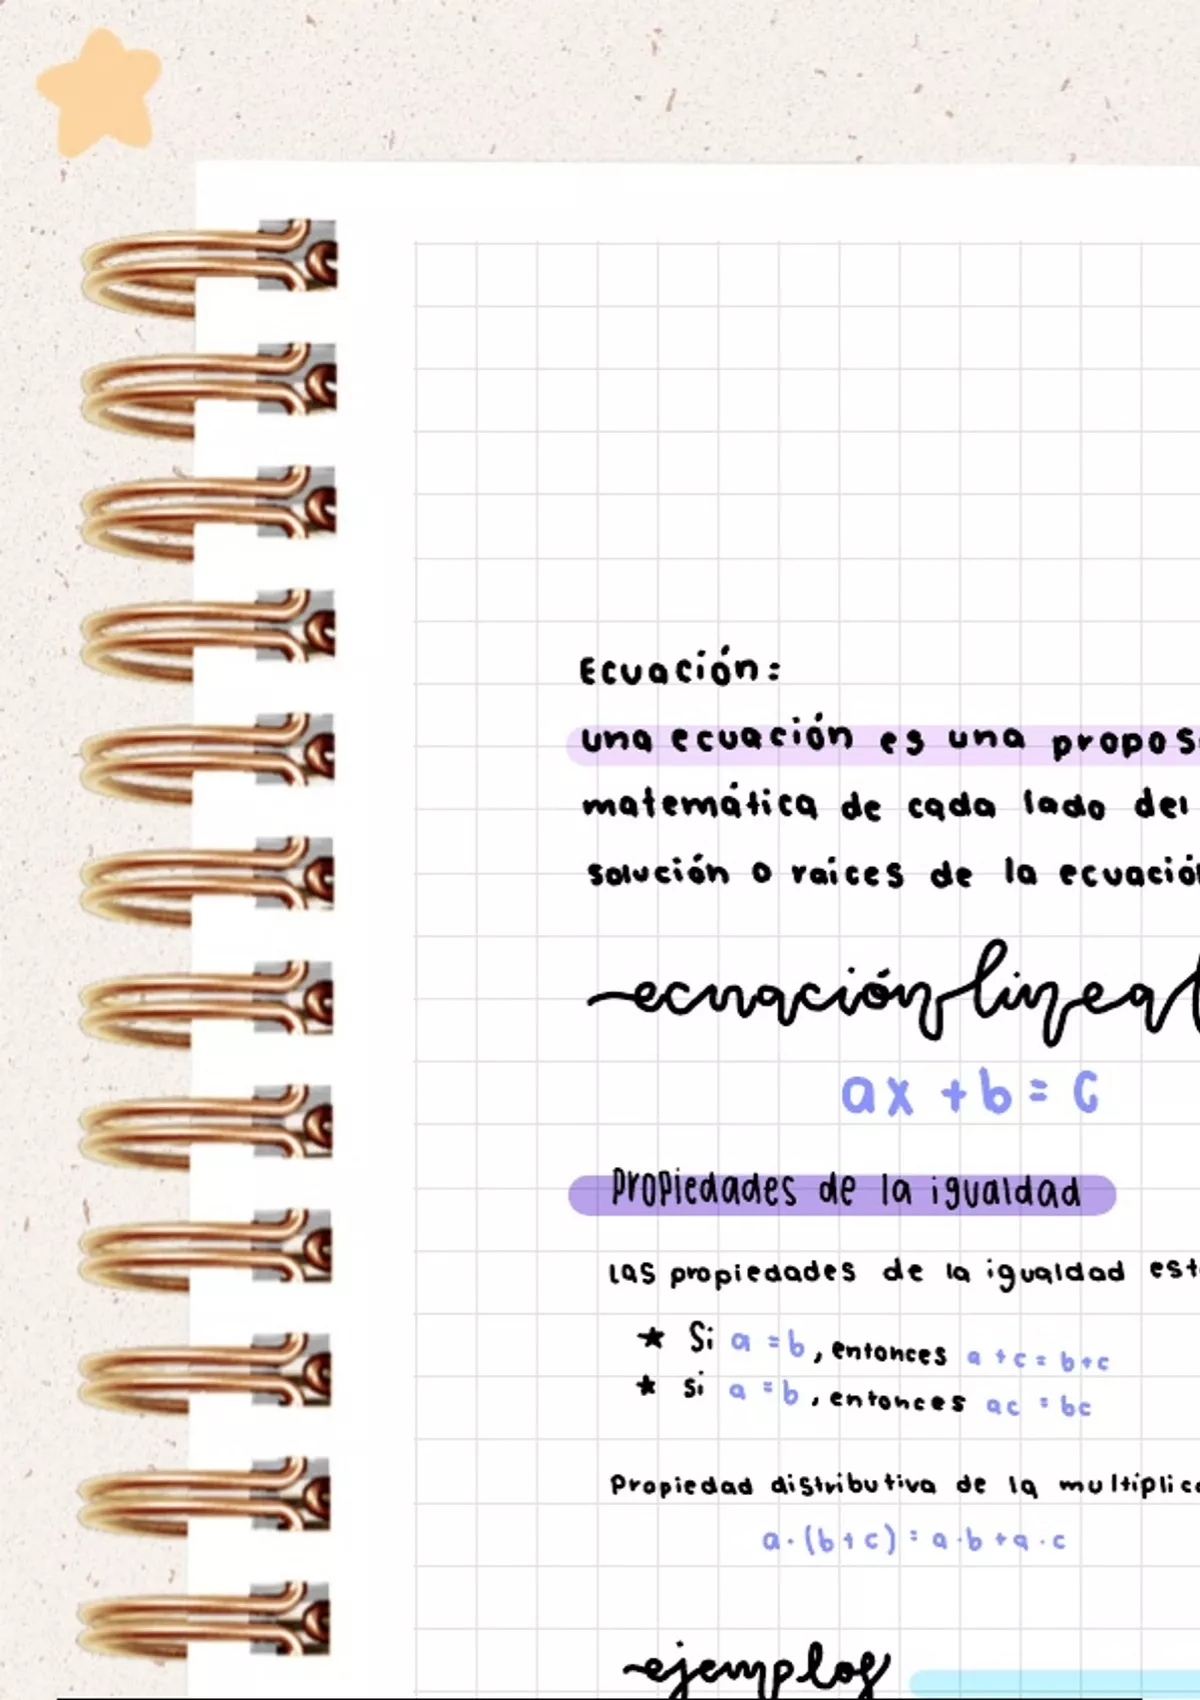 Ecuación:
una ecuación es una
matemática de cada lado del
solución o raices de la
ecuación lineal
ax + b = c
Propiedades de la igualdad
las propiedades de la igualdad
★ Si a = b, entonces a + c = b + c
★ si a = b, entonces ac = bc
Propiedad distributiva de la
a · (b + c) = a · b + a · c
ejemplos